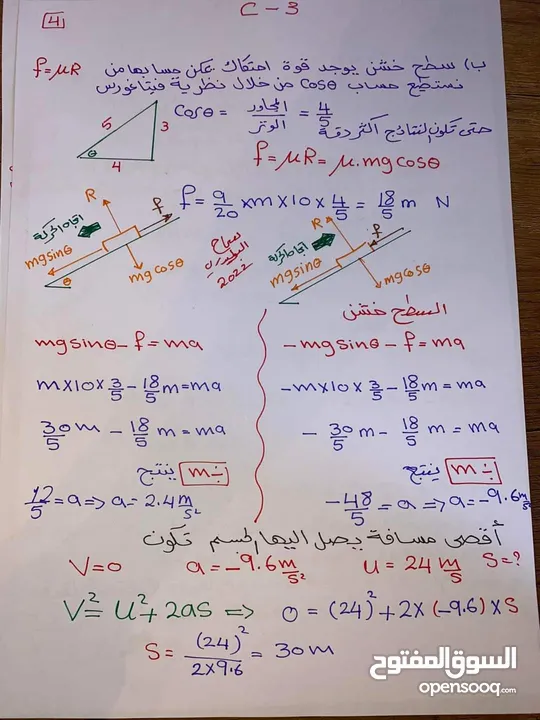 C - 3
4
ب) سطح خشن يوجد قوة احتكاك يمكن حسابها من f = μR
نستطيع حساب Cosθ من خلال نظرية فيثاغورس
Cosθ = المجاور / الوتر = 4/5
حتى تكون النتائج اكثر دقة
5
3
4
θ
f = μR = μ.mg cosθ
f = 9/20 × m × 10 × 4/5 = 18/5 m N
R
f
اتجاه الحركة
mg sinθ
mg cosθ
θ
2022
R
f
اتجاه الحركة
mg sinθ
mg cosθ
السطح خشن
mg sinθ - f = ma
m×10×3/5 - 18/5 m = ma
30/5 m - 18/5 m = ma
÷ m ينتج
12/5 = a ⇒ a = 2.4 m/s²
- mg sinθ - f = ma
-m×10×3/5 - 18/5 m = ma
- 30/5 m - 18/5 m = ma
÷ m ينتج
-48/5 = a ⇒ a = -9.6 m/s²
أقصى مسافة يصل اليها الجسم تكون
V = 0 a = -9.6 m/s² u = 24 m/s S = ?
V² = u² + 2as ⇒ 0 = (24)² + 2× (-9.6) × S
S = (24)² / 2×9.6 = 30 m
السوق المفتوح
opensooq.com